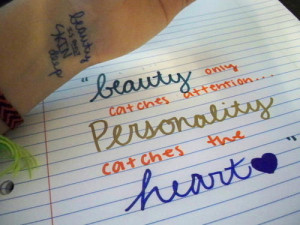 beauty
is not
SKIN
deep
"beauty only
catches attention...
Personality
catches the
heart"